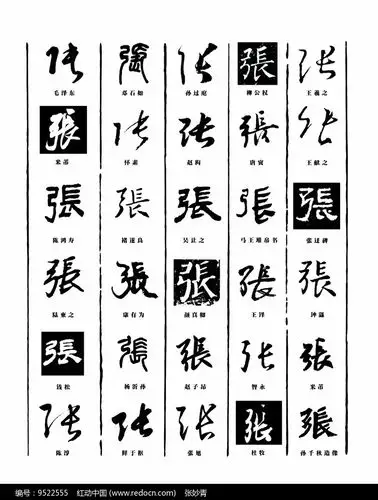 张 張 张 張 张
毛泽东 邓石如 孙过庭 柳公权 王羲之
張 张 张 張 张
米芾 怀素 赵构 唐寅 王献之
張 張 張 張 張
陈鸿寿 褚遂良 吴让之 马王堆帛书 张迁碑
張 張 張 張 張
陆柬之 康有为 颜真卿 王铎 钟繇
張 張 張 张 張
钱松 杨沂孙 赵子昂 智永 米芾
张 张 张 張 張
陈淳 鲜于枢 张旭 杜牧 孙千秋造像
编号:9522555 红动中国 (www.redocn.com) 张妙青